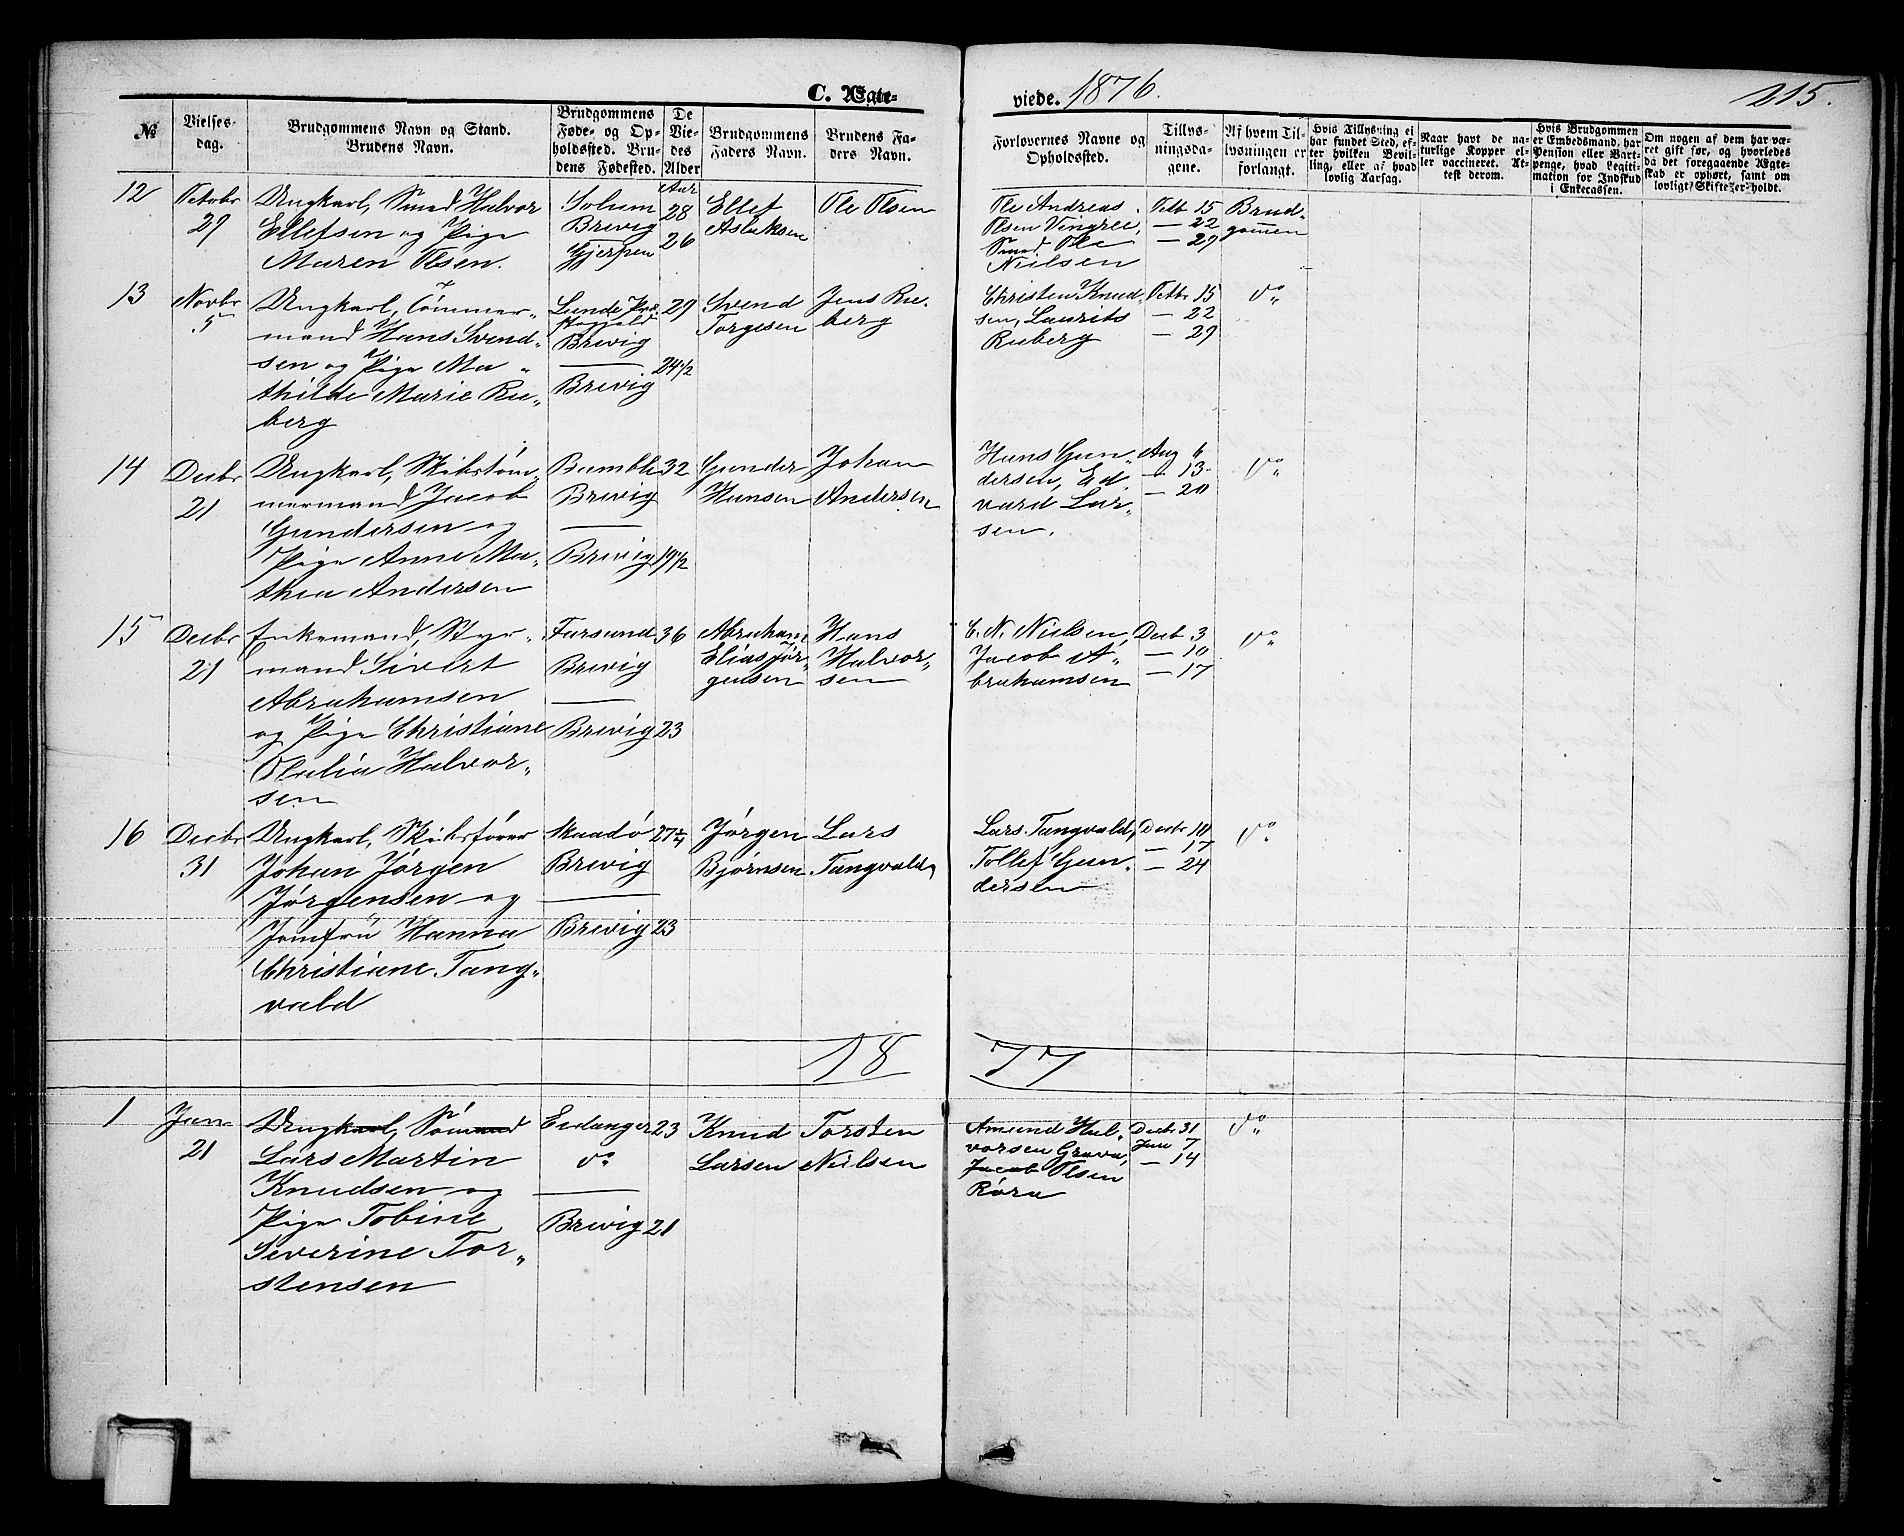 C. Ægte-
viede. 1876.
215.
№
Vielses-
dag.
Brudgommens Navn og Stand.
Brudens Navn.
Brudgommens
Føde- og Op-
holdssted. Bru-
dens Fødested.
De
Vie-
des
Alder
Brudgommens
Faders Navn.
Brudens Fa-
ders Navn.
Forlovernes Navne og
Opholdssted.
Tillys-
ningsda-
gene.
Af hvem Til-
lysningen er
forlangt.
Hvis Tillysning ei
har fundet Sted, ef-
ter hvilken Bevil-
ling, eller af hvad
lovlig Aarsag.
Naar havt de na-
turlige Kopper el-
ler vaccineret. At-
test derom.
Hvis Brudgommen
er Embedsmand, har
Pension eller Vart-
penge, hvad Legiti-
mation for Indskud
i Enkecassen.
Om nogen af dem har væ-
ret gift før, og hvorledes
da det foregaaende Ægte-
skab er ophørt, samt om
lovligt Skifte er holdt.
12
Octobr
29
Ungkarl, Smed Halvor
Ellefsen og Pige
Maren Olsen.
Solum
Brevig
Gjerpen
Aar
28
26
Ellef
Aslaksen
Ole Olsen
Ole Andreas
Olsen
Smed Ole
Nielsen
Octb 15
— 22
— 29
Brud-
gomen
13
Novbr
5
Ungkarl, Tømmer-
mand Hans Svend-
sen og Pige Ma-
thilde Marie Ru-
berg
Lunde
Brevig
Brevig
29
24 1/2
Svend
Torgesen
Jens Ru-
berg
Christen Knud-
sen, Laurits
Ruberg
Octbr 15
— 22
— 29
do
14
Decbr
21
Ungkarl, Skibstøm-
mermand Jacob
Gundersen og
Pige Anne Ma-
thea Andersen
Bamble
Brevig
Brevig
32
19 1/2
Gunder
Hansen
Johan
Andersen
Hans Gun-
dersen, Ed-
vard Lar-
sen.
Aug 6
— 13
— 20
do
15
Decbr
21
Enkemand, Styr-
mand Sivert
Abrahamsen
og Pige Christiane
Olalia Halvor-
sen
Farsund
Brevig
Brevig
36
23
Abraham
Elias Jør-
gensen
Hans
Halvor-
sen
C. N. Nielsen,
Jacob A-
brahamsen
Decb 3
— 10
— 17
do
16
Decbr
31
Ungkarl, Skibsfører
Johan Jørgen
Jørgensen og
Jomfru Hanna
Christiane Tang-
vald
Skaadø
Brevig
Brevig
27 2/4
23
Jørgen
Bjørnsen
Lars
Tangvald
Lars Tangvald,
Tollef Gun-
dersen
Decbr 10
— 17
— 24
do
18
77
1
Jan
21
Ungkarl, Sømand
Lars Martin
Knudsen og
Pige Tobine
Severine Tor-
stensen
Eidanger
do
Brevig
23
21
Knud
Larsen
Torsten
Nielsen
Amund Hal-
vorsen Grava,
Jacob Olsen
Røra
Decbr 31
Jan 7
— 14
do